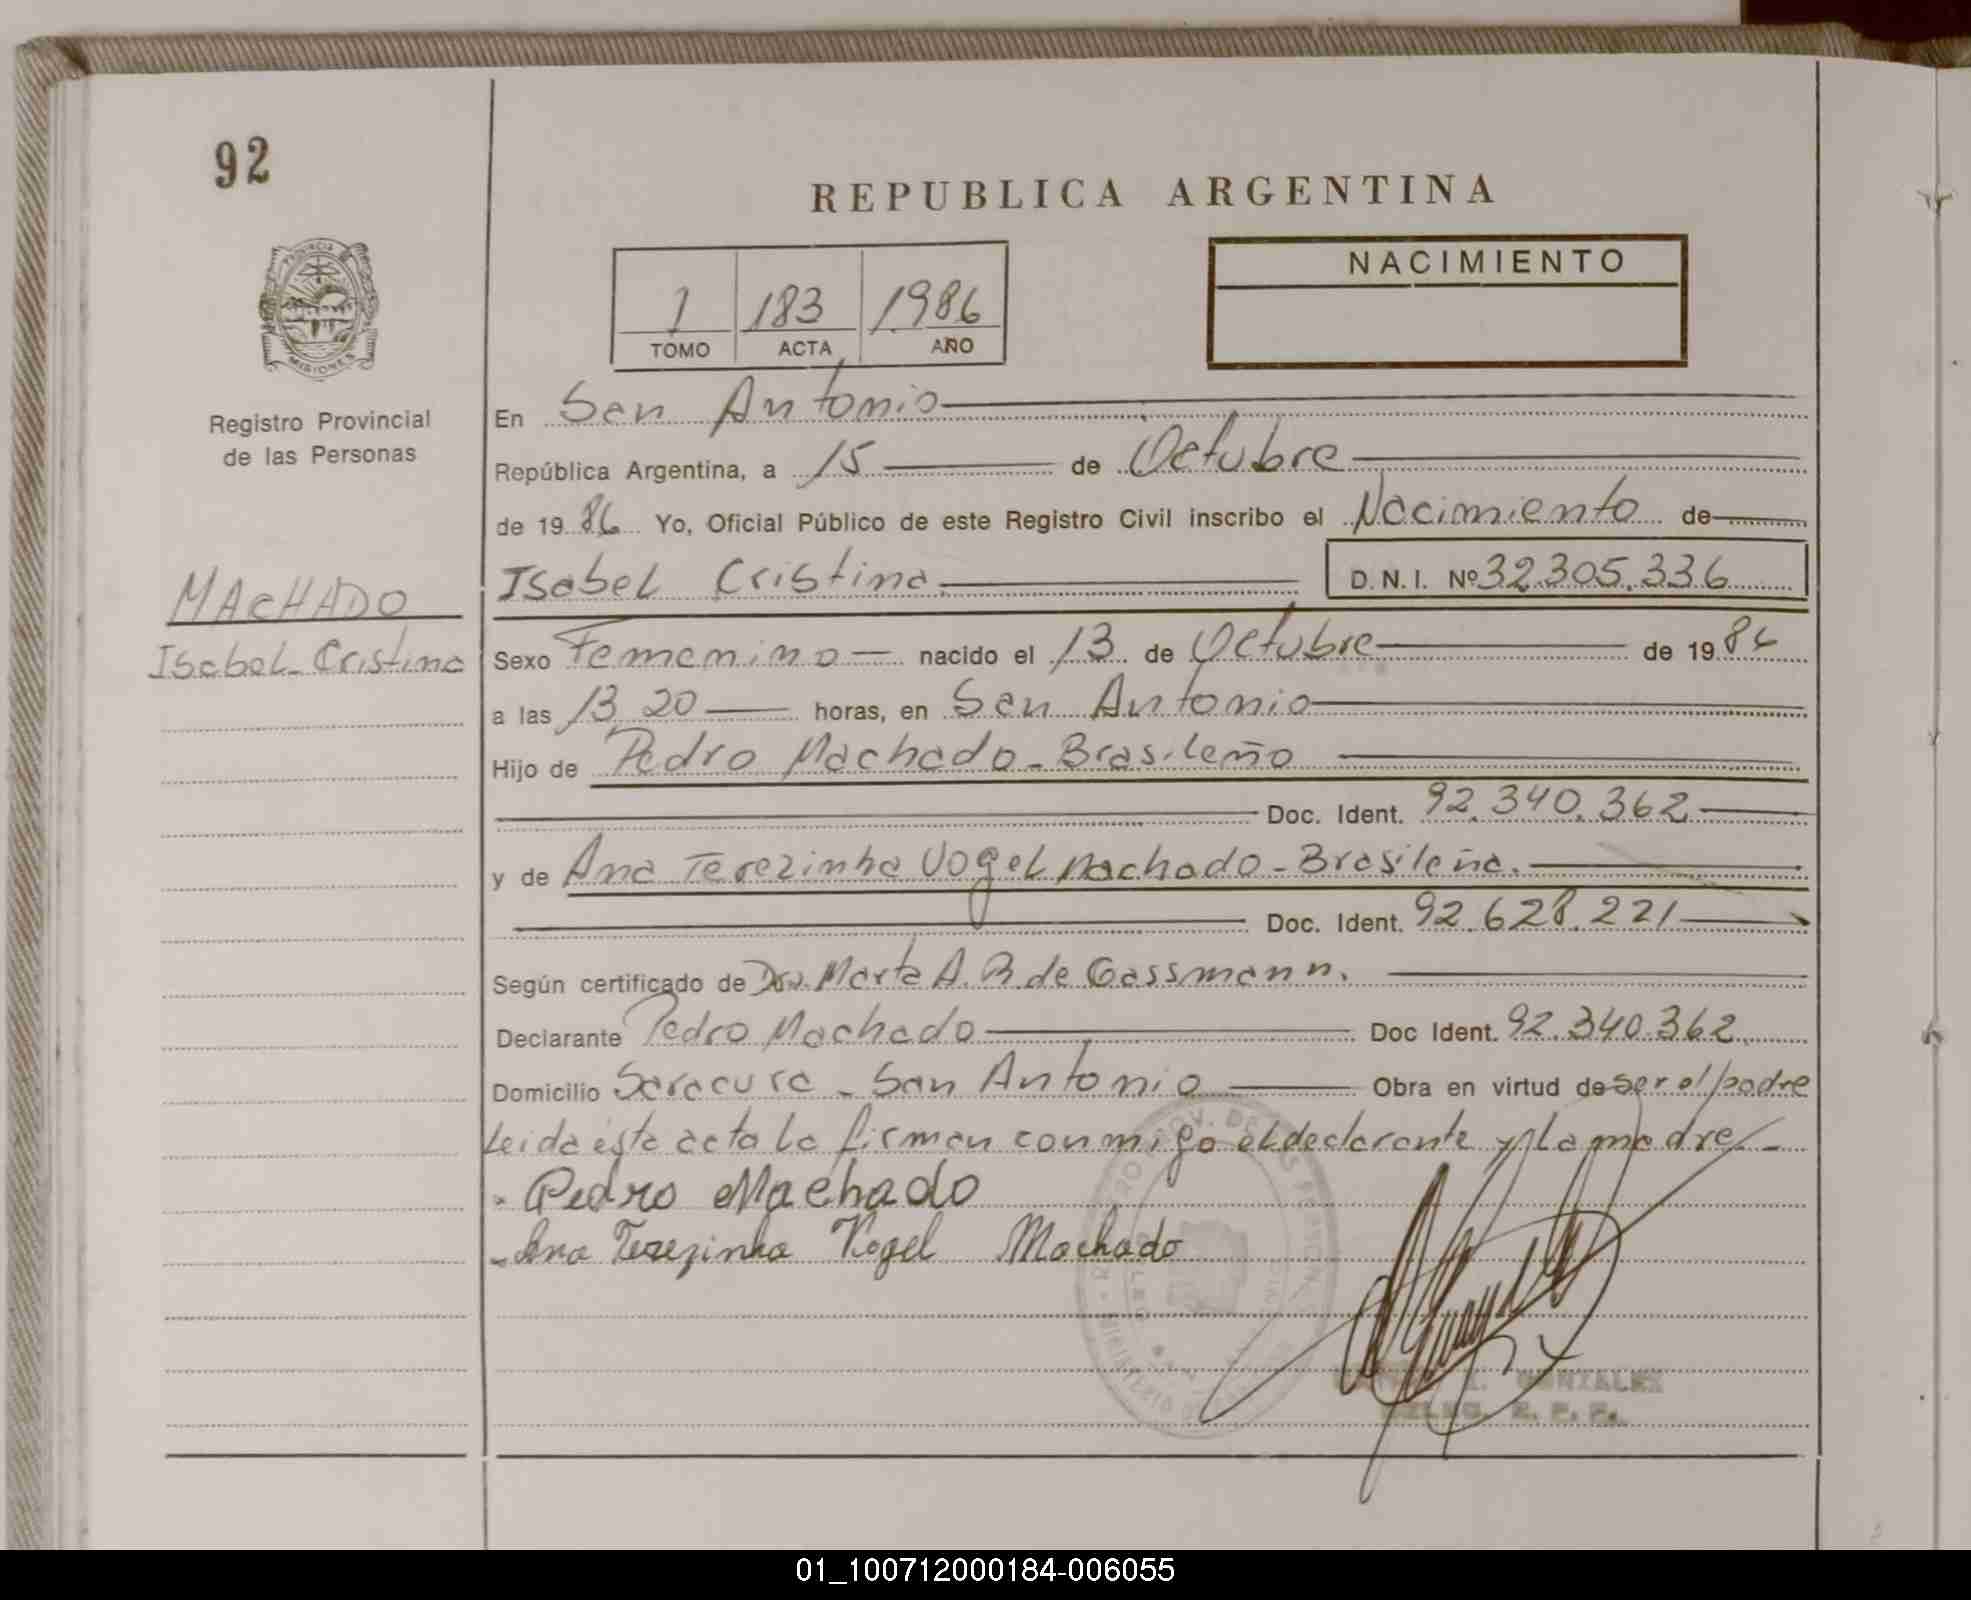 92
REPUBLICA ARGENTINA
NACIMIENTO
1 183 1986
TOMO ACTA AÑO
PROVINCIA
MISIONES
Registro Provincial
de las Personas
MACHADO
Isabel Cristina
En San Antonio
República Argentina, a 15 de Octubre
de 1986 Yo, Oficial Público de este Registro Civil inscribo el Nacimiento de
Isabel Cristina. D.N.I. Nº 32.305.336
Sexo Femenino nacido el 13 de Octubre de 1986
a las 13 20 horas, en San Antonio
Hijo de Pedro Machado - Brasileño
Doc. Ident. 92.340.362
y de Ana Terezinha Vogel Machado - Brasileña.
Doc. Ident. 92.628.221
Según certificado de Dra. Marta A. B de Gassmann.
Declarante Pedro Machado Doc Ident. 92.340.362
Domicilio Saracura - San Antonio Obra en virtud de ser el padre
Leida ésta acta la firman conmigo el declarante y la madre -
Pedro Machado
- Ana Terezinha Vogel Machado
GONZALEZ
DELEG. R. P. P.
01_100712000184-006055